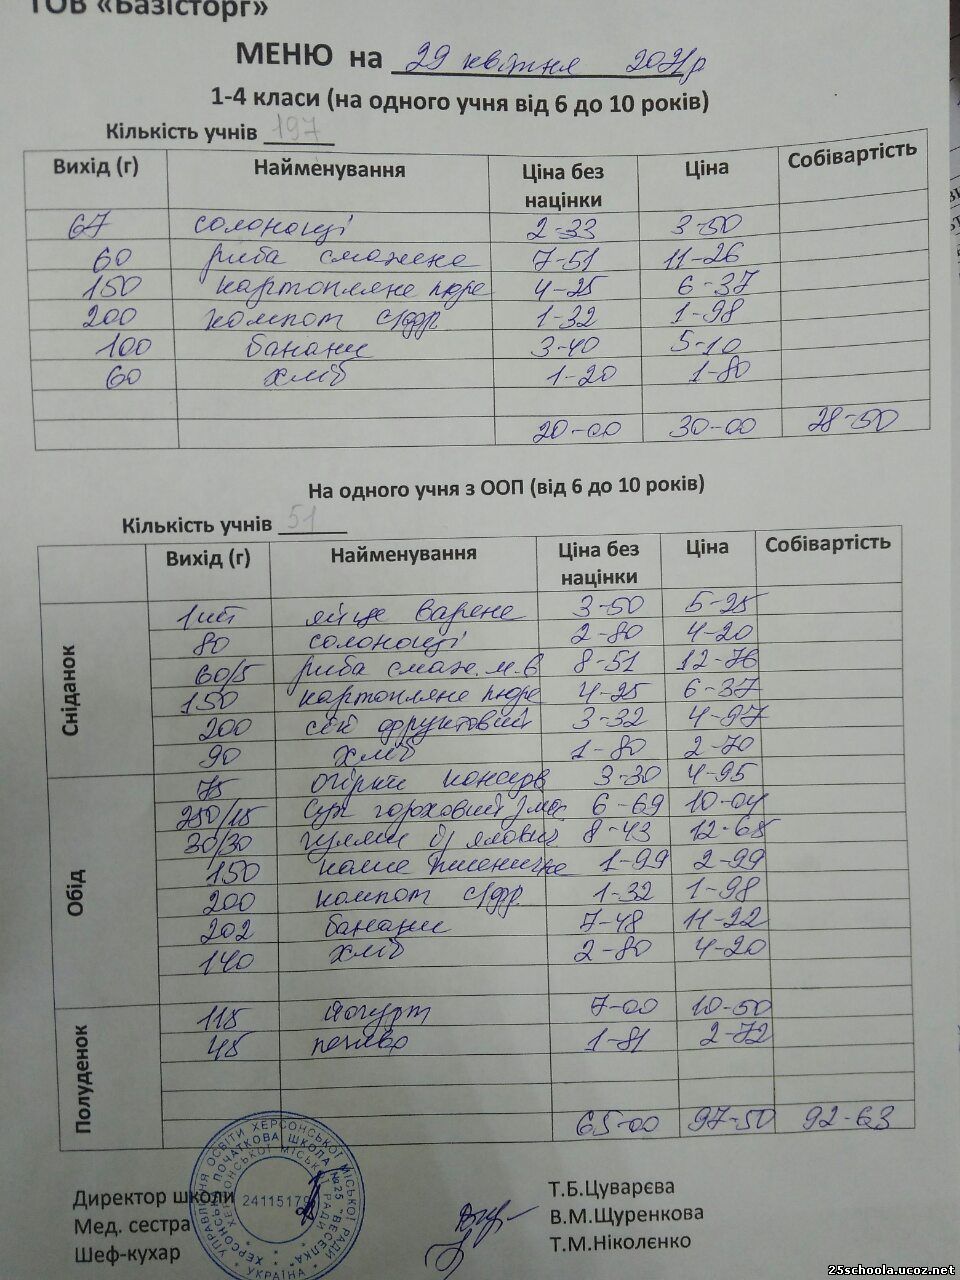 ТОВ «Базісторг»
МЕНЮ на 29 квітня 2021р
1-4 класи (на одного учня від 6 до 10 років)
Кількість учнів 197
Вихід (г) Найменування Ціна без націнки Ціна Собівартість
67 солонощі 2-33 3-50
60 риба смажена 7-51 11-26
150 картопляне пюре 4-25 6-37
200 компот с/фр 1-32 1-98
100 банани 3-40 5-10
60 хліб 1-20 1-80
20-00 30-00 28-50
На одного учня з ООП (від 6 до 10 років)
Кількість учнів 51
Вихід (г) Найменування Ціна без націнки Ціна Собівартість
Сніданок
1шт яйце варене 3-50 5-25
80 солонощі 2-80 4-20
60/5 риба смаж. м.в 8-51 12-76
150 картопляне пюре 4-25 6-37
200 сік фруктовий 3-32 4-97
90 хліб 1-80 2-70
Обід
75 огірки консерв 3-30 4-95
250/15 суп гороховий 6-69 10-04
30/30 гуляш ялович 8-43 12-65
150 каша пшенична 1-99 2-99
200 компот с/фр 1-32 1-98
202 банани 7-48 11-22
140 хліб 2-80 4-20
Полуденок
115 йогурт 7-00 10-50
45 печиво 1-81 2-72
65-00 97-50 92-63
Директор школи Т.Б.Цуварєва
Мед. сестра В.М.Щуренкова
Шеф-кухар Т.М.Ніколєнко
УПРАВЛІННЯ ОСВІТИ ХЕРСОНСЬКОЇ МІСЬКОЇ РАДИ
ХЕРСОНСЬКА ПОЧАТКОВА ШКОЛА №25 "ВЕСЕЛКА"
ХЕРСОНСЬКОЇ МІСЬКОЇ РАДИ
24115179
УКРАЇНА
25schoola.ucoz.net